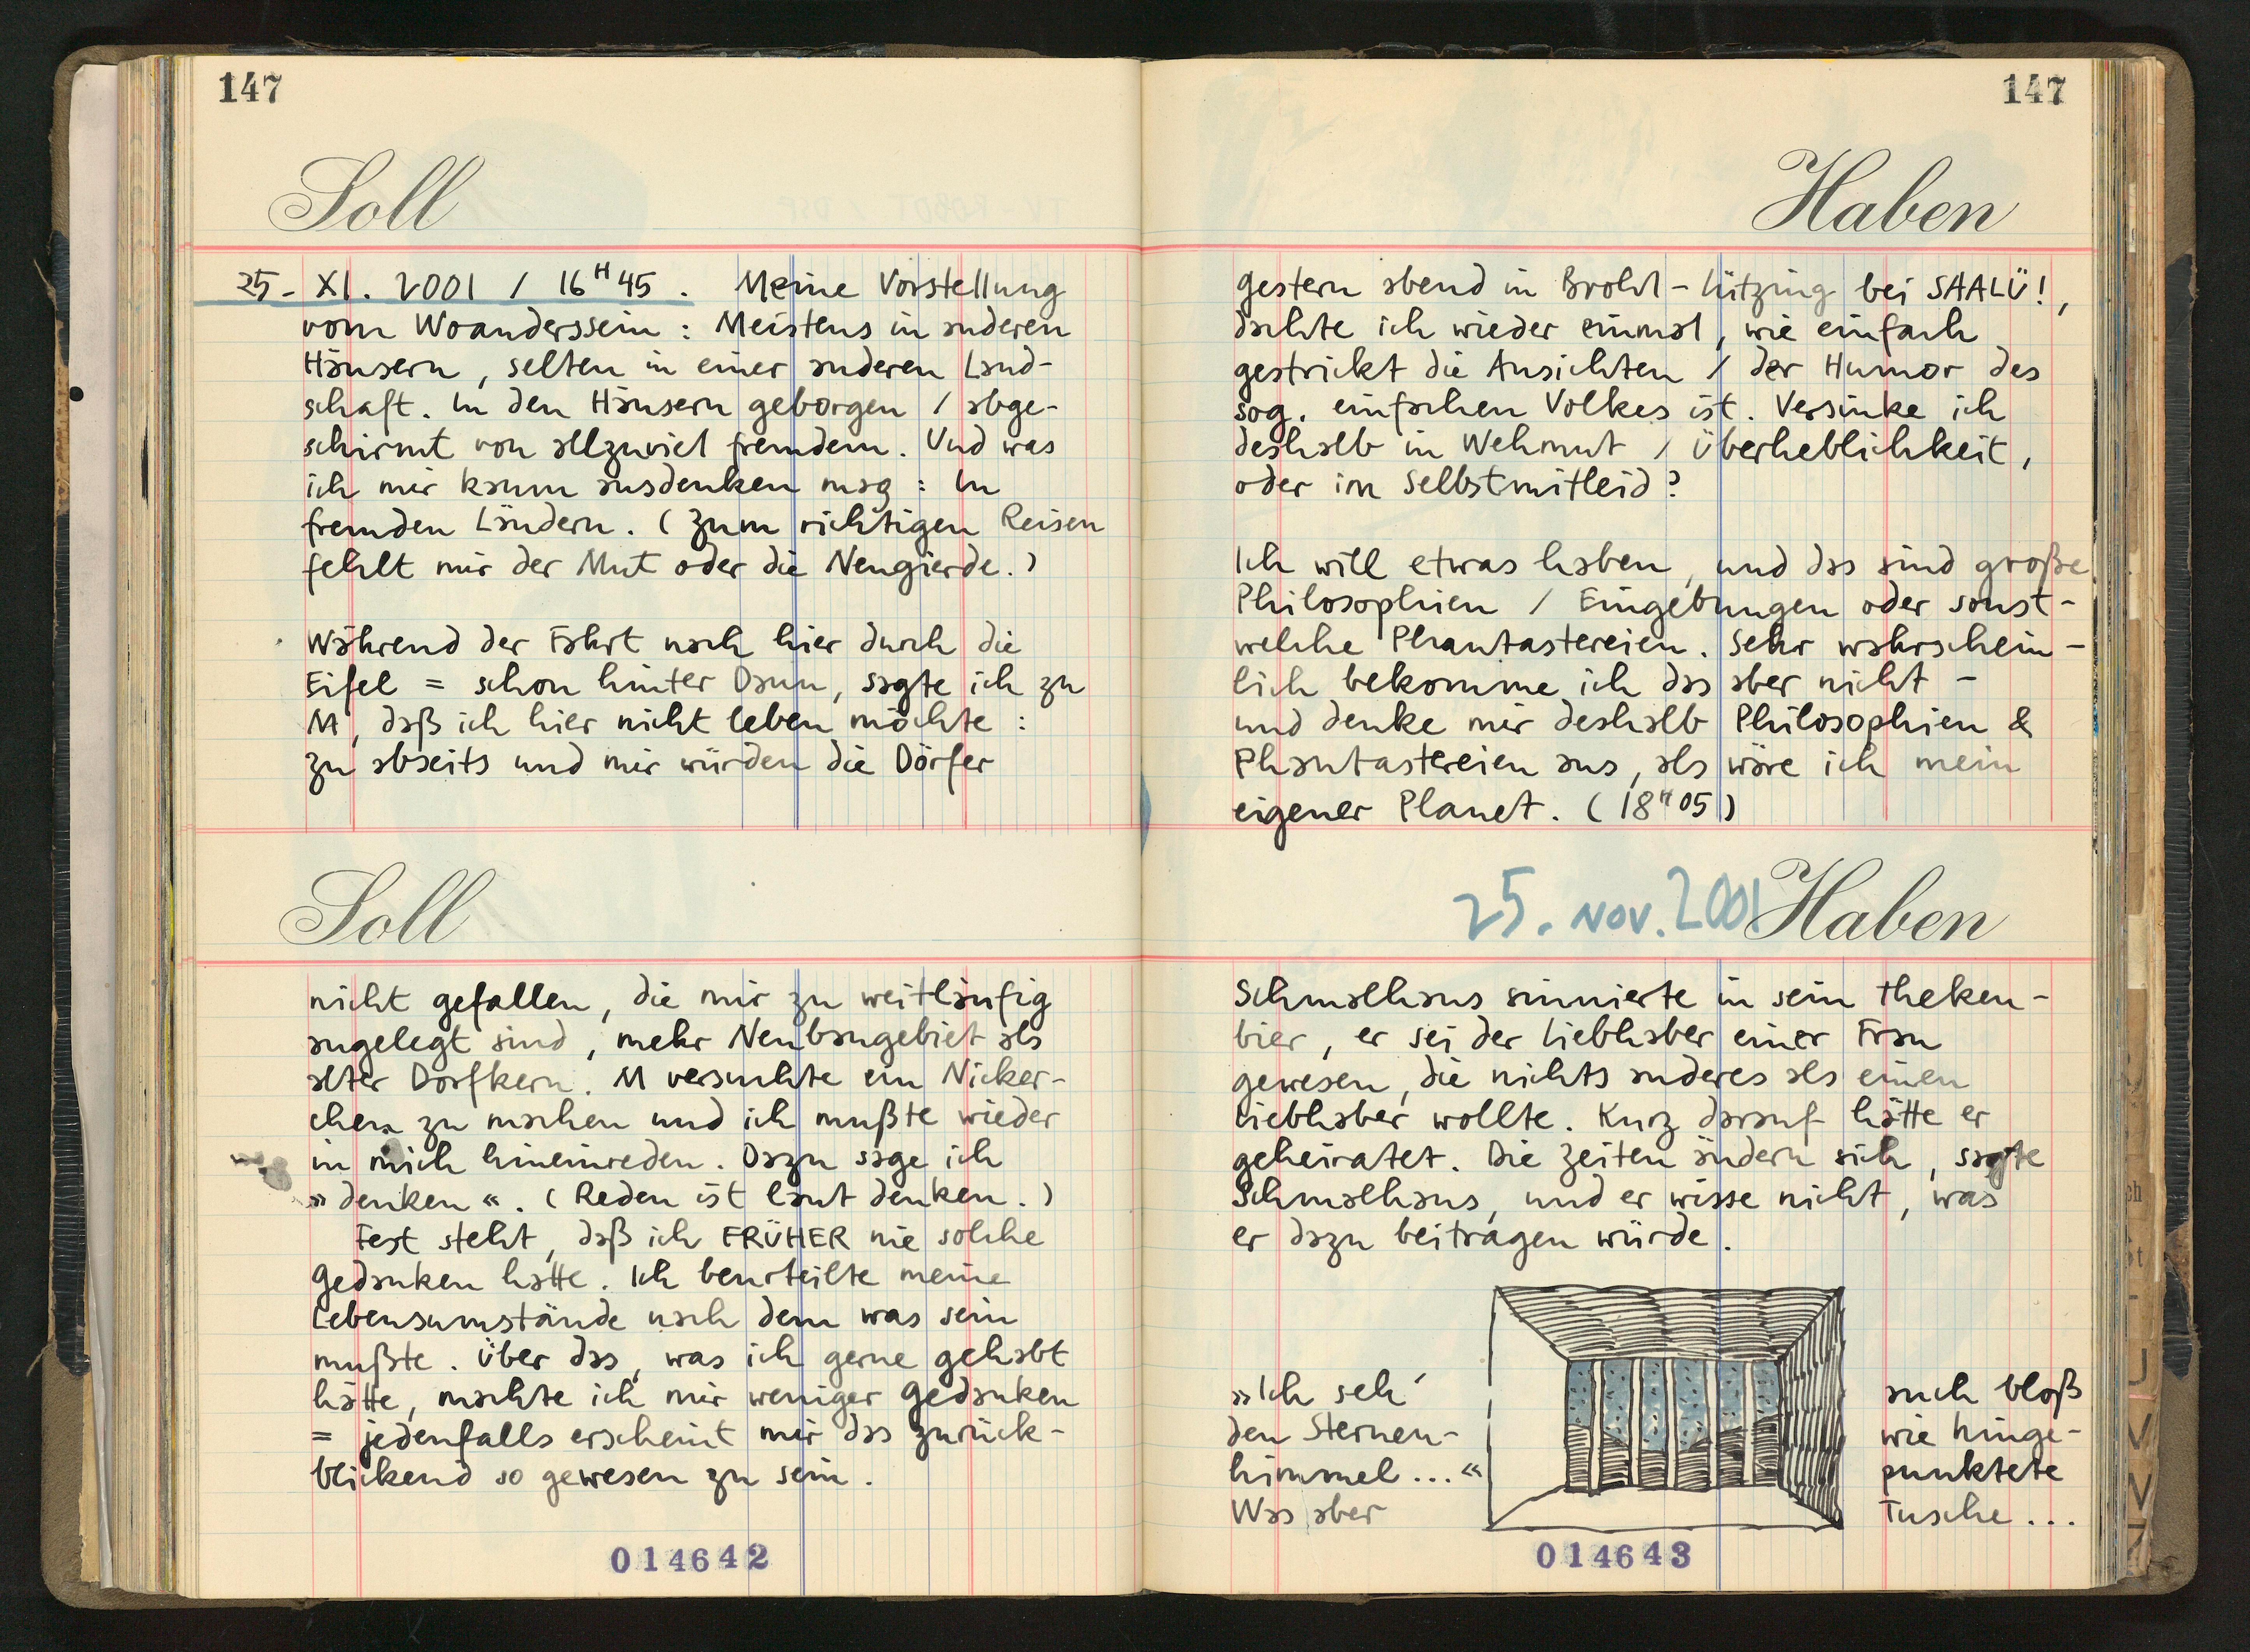 147
Soll
25. XI. 2001 / 16H45. Meine Vorstellung
vom Woanderssein: Meistens in anderen
Häusern, selten in einer anderen Land-
schaft. In den Häusern geborgen / abge-
schirmt von allzuviel fremdem. Und was
ich mir kaum ausdenken mag: In
fremden Ländern. (Zum richtigen Reisen
fehlt mir der Mut oder die Neugierde.)
Während der Fahrt nach hier durch die
Eifel = schon hinter Daun, sagte ich zu
M, daß ich hier nicht leben möchte:
zu abseits und mir würden die Dörfer
Soll
nicht gefallen, die mir zu weitläufig
angelegt sind, mehr Neubaugebiet als
alter Dorfkern. M versuchte ein Nicker-
chen zu machen und ich mußte wieder
in mich hineinreden. Dazu sage ich
»denken«. (Reden ist laut denken.)
Fest steht, daß ich FRÜHER nie solche
Gedanken hatte. Ich beurteilte meine
Lebensumstände nach dem was sein
mußte. Über das, was ich gerne gehabt
hätte, machte ich mir weniger Gedanken
= jedenfalls erscheint mir das zurück-
blickend so gewesen zu sein.
014642
147
Haben
Gestern abend in Brohl-Lützing bei SAALÜ!,
dachte ich wieder einmal, wie einfach
gestrickt die Ansichten / der Humor des
sog. einfachen Volkes ist. Versinke ich
deshalb in Wehmut / Überheblichkeit,
oder im Selbstmitleid?
Ich will etwas haben, und das sind große
Philosophien / Eingebungen oder sonst-
welche Phantastereien. Sehr wahrschein-
lich bekomme ich das aber nicht –
und denke mir deshalb Philosophien &
Phantastereien aus, als wäre ich mein
eigener Planet. (18H05)
25. NOV. 2001 Haben
Schmalhans sinnierte in sein Theken-
bier, er sei der Liebhaber einer Frau
gewesen, die nichts anderes als einen
Liebhaber wollte. Kurz darauf hätte er
geheiratet. Die Zeiten ändern sich, sagte
Schmalhans, und er wisse nicht, was
er dazu beitragen würde.
»Ich seh'
den Sternen-
himmel...«
Was aber
auch bloß
wie hinge-
punktete
Tusche...
014643